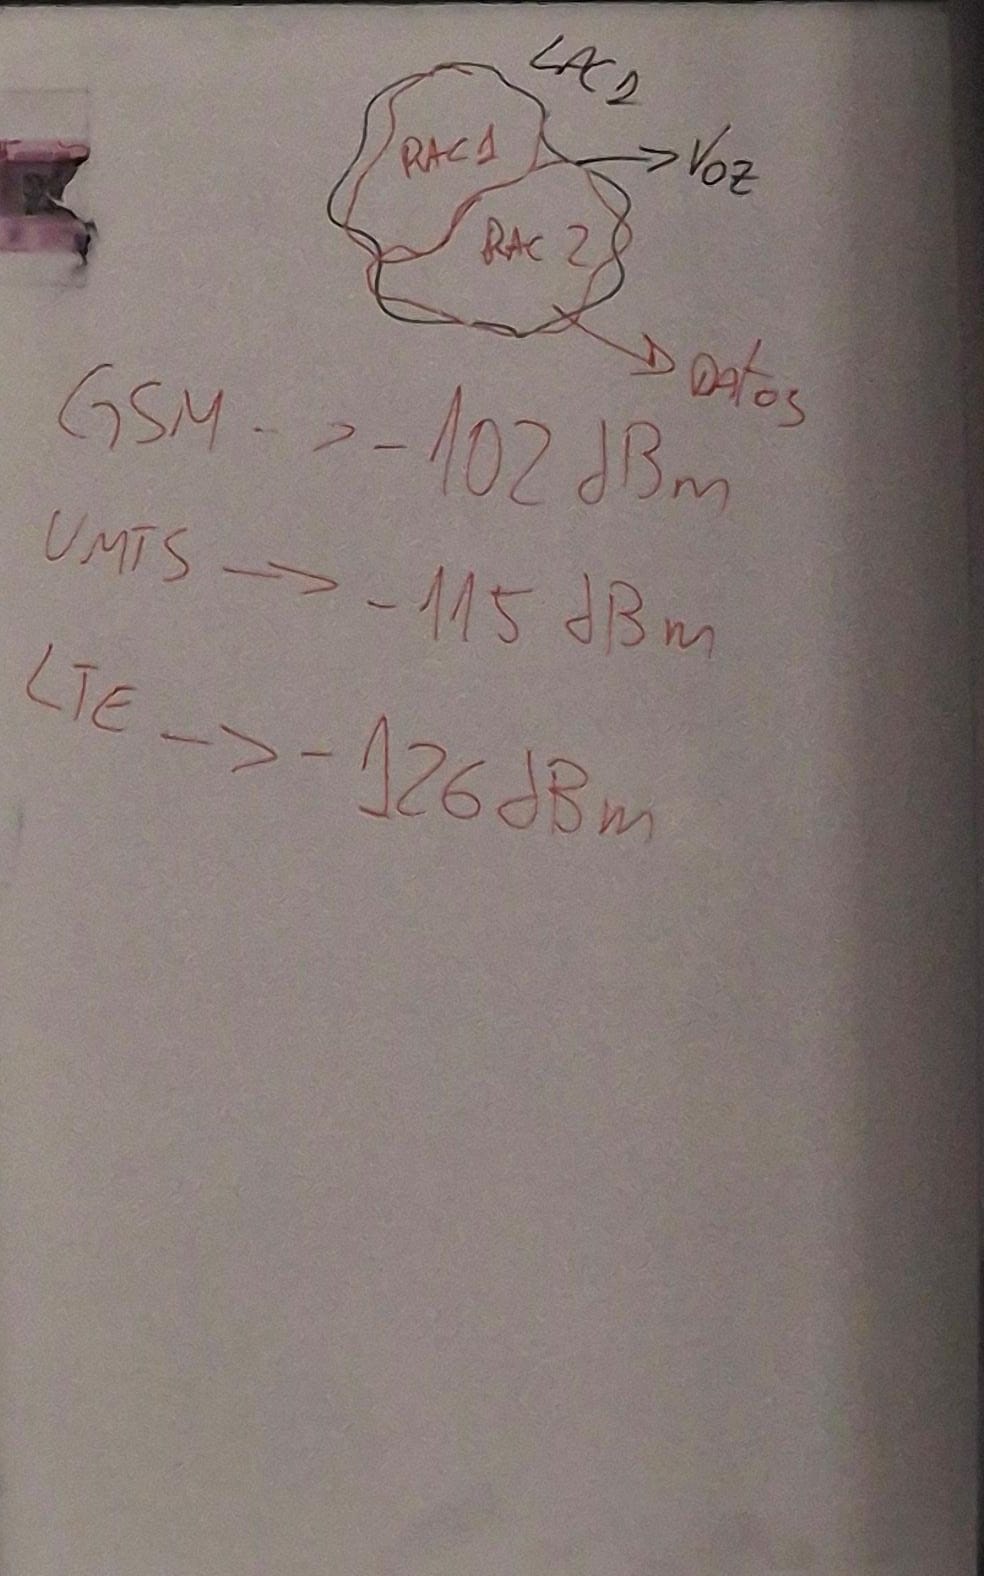 LAC1
RAC1
VOZ
RAC 2
DATOS
GSM --> -102 dBm
UMTS --> -115 dBm
LTE --> -126 dBm